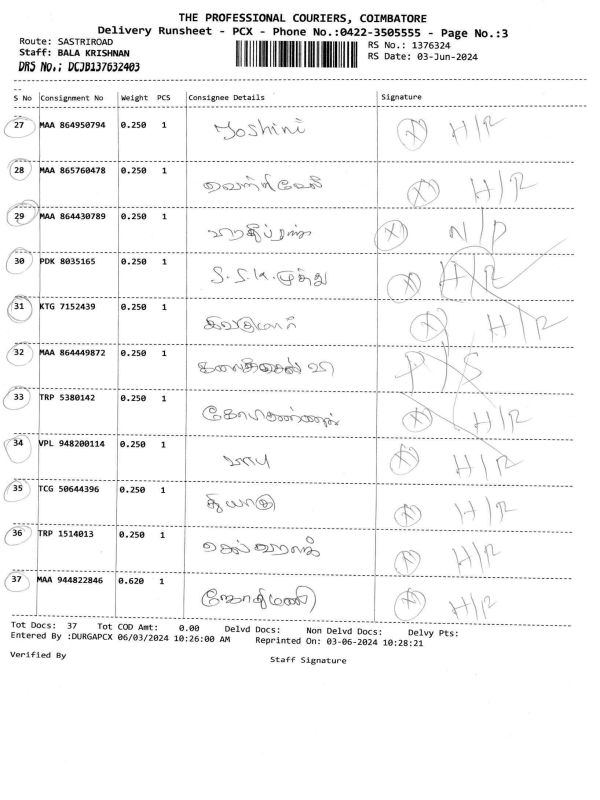 THE PROFESSIONAL COURIERS, COIMBATORE
Delivery Runsheet - PCX - Phone No.:0422-3505555 - Page No.:3
Route: SASTRIROAD
RS No.: 1376324
Staff: BALA KRISHNAN
RS Date: 03-Jun-2024
DRS No.; DCJB137632403
S No Consignment No Weight PCS Consignee Details Signature
27 MAA 864950794 0.250 1 Yoshini X H/R
28 MAA 865760478 0.250 1 X H/R
29 MAA 864430789 0.250 1 X N/P
30 PDK 8035165 0.250 1 S.S.K. முத்து X H/R
31 KTG 7152439 0.250 1 X H/R
32 MAA 864449872 0.250 1 P/S
33 TRP 5380142 0.250 1 X H/R
34 VPL 948200114 0.250 1 X H/R
35 TCG 50644396 0.250 1 X H/R
36 TRP 1514013 0.250 1 X H/R
37 MAA 944822846 0.620 1 ஜோதிமணி X H/R
Tot Docs: 37 Tot COD Amt: 0.00 Delvd Docs: Non Delvd Docs: Delvy Pts:
Entered By :DURGAPCX 06/03/2024 10:26:00 AM Reprinted On: 03-06-2024 10:28:21
Verified By
Staff Signature